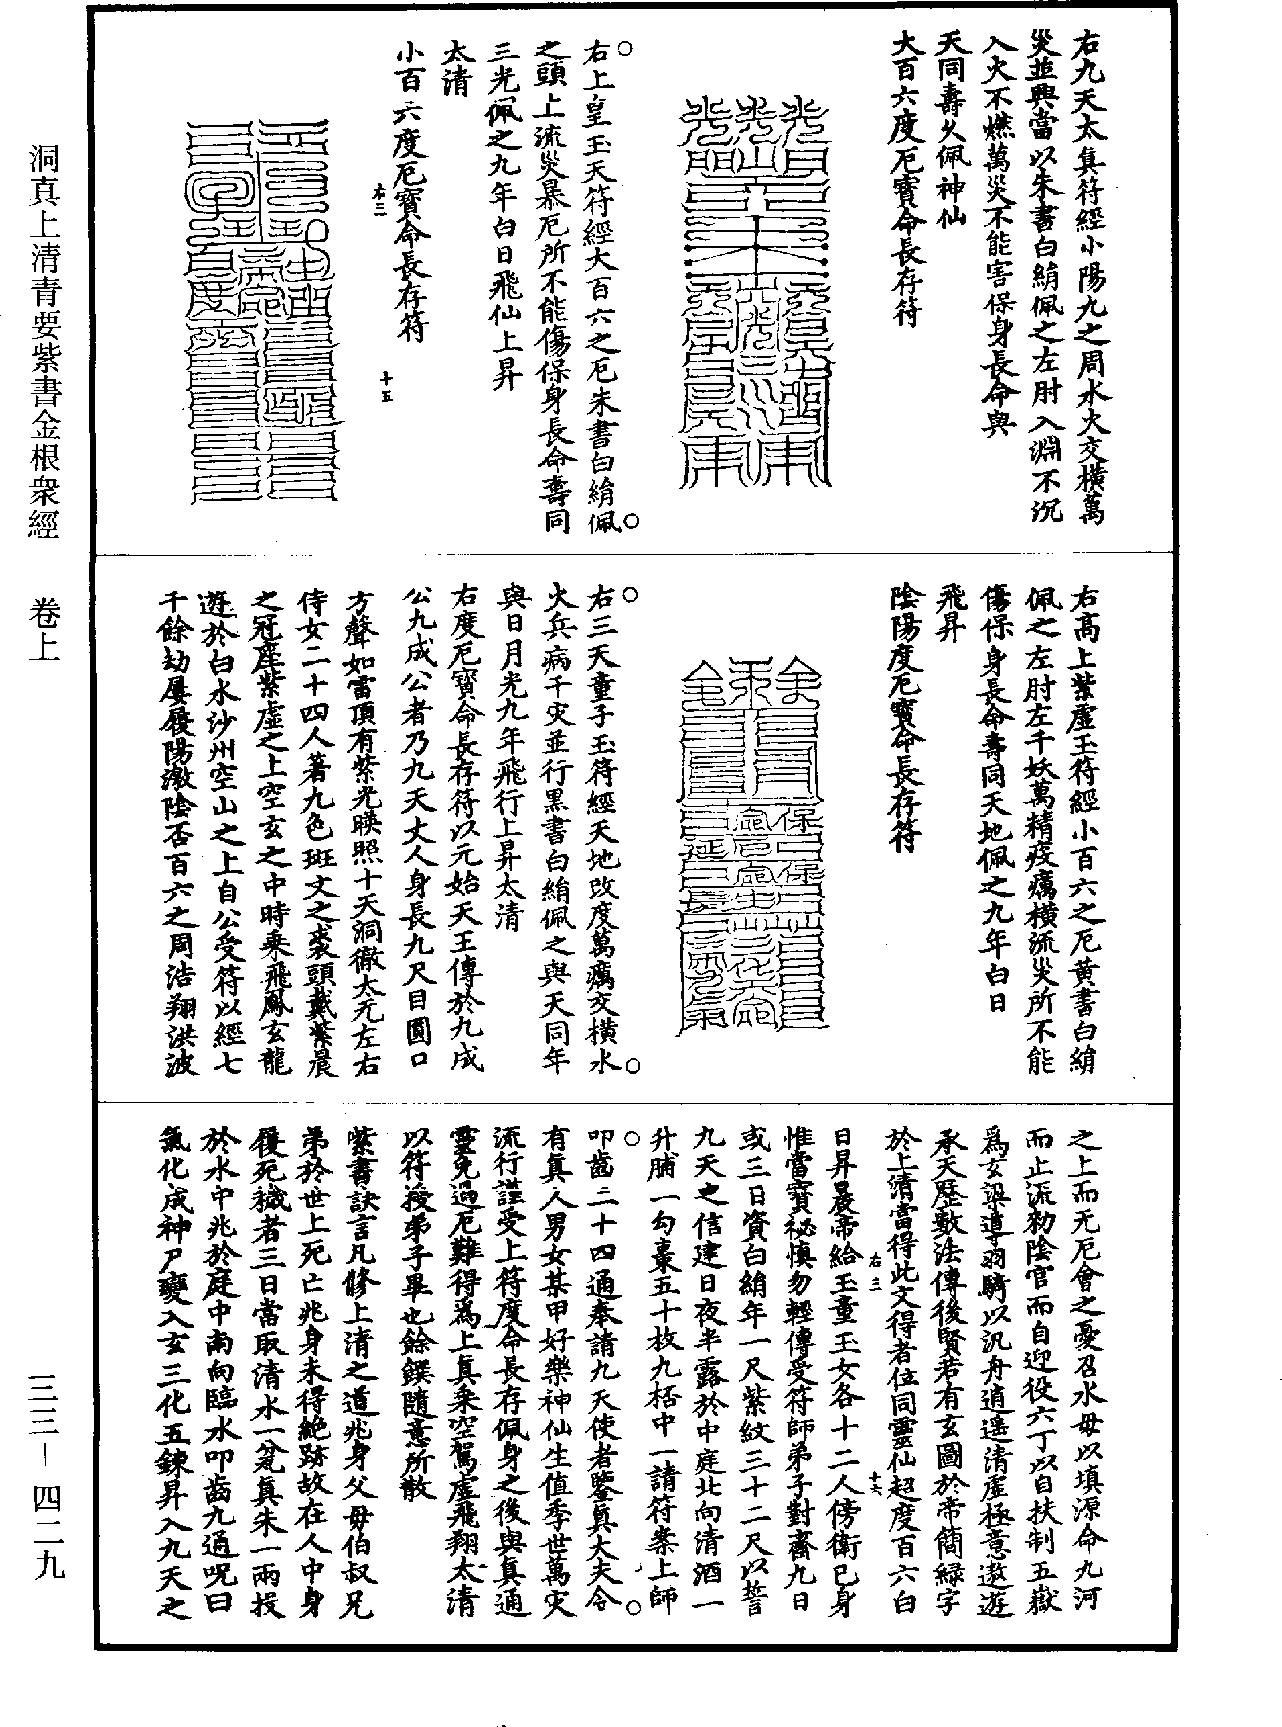 洞真上清青要紫書金根衆經　卷上
三三—四二九
右九天太真符經小陽九之周水火交橫萬
災並興當以朱書白絹佩之左肘入淵不沉
入火不燃萬災不能害保身長命與
天同壽久佩神仙
大百六度厄寶命長存符
右上皇玉天符經大百六之厄朱書白絹佩
之頭上流災暴厄所不能傷保身長命壽同
三光佩之九年白日飛仙上昇
太清
小百六度厄寶命長存符
右三
十五
右高上紫虛玉符經小百六之厄黄書白絹
佩之左肘左千妖萬精疫癘橫流災所不能
傷保身長命壽同天地佩之九年白日
飛昇
陰陽度厄寶命長存符
右三天童子玉符經天地改度萬癘交橫水
火兵病千灾並行黑書白絹佩之與天同年
與日月光九年飛行上昇太清
右度厄寶命長存符以元始天王傳於九成
公九成公者乃九天丈人身長九尺目圓口
方聲如雷頂有紫光暎照十天洞徹太无左右
侍女二十四人著九色班文之裘頭戴紫晨
之冠座紫虛之上空玄之中時乘飛鳳玄龍
遊於白水沙州空山之上自公受符以經七
千餘劫屢履陽激陰否百六之周浩翔洪波
之上而无厄會之憂召水母以填源命九河
而止流勑陰官而自迎役六丁以自扶制五嶽
爲玄梁導羽騎以汎舟逍遥清虛極意遨遊
承天歷數法傳後賢若有玄圖於帝簡緑字
於上清當得此文得者位同靈仙超度百六白
右三
十六
日昇晨帝給玉童玉女各十二人傍衛已身
惟當寶祕慎勿輕傳受符師弟子對齋九日
或三日資白絹年一尺紫紋三十二尺以誓
九天之信建日夜半露於中庭北向清酒一
升脯一勾棗五十枚九柸中一請符案上師
叩齒二十四通奉請九天使者鑒真大夫令
有真人男女某甲好樂神仙生值季世萬灾
流行謹受上符度命長存佩身之後與真通
靈免過厄難得爲上真乘空駕虛飛翔太清
以符授弟子畢也餘饌隨意所散
紫書訣言凡修上清之道兆身父母伯叔兄
弟於世上死亡兆身未得絶跡故在人中身
履死穢者三日當取清水一瓫真朱一兩投
於水中兆於庭中南向臨水叩齒九通呪曰
氣化成神尸變入玄三化五鍊昇入九天之